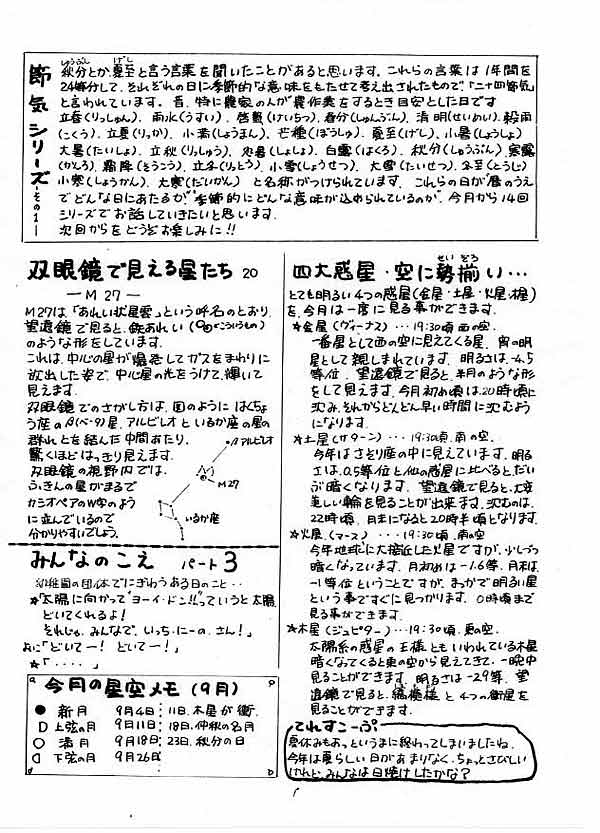 節気シリーズ その1
しゅうぶん げし
秋分とか夏至と言う言葉を聞いたことがあると思います。これらの言葉は1年間を
24等分して、それぞれの日に季節的な意味をもたせて考え出されたもので「二十四節気」
と言われています。昔、特に農家の人が農作業をするとき目安とした日です
立春(りっしゅん)、雨水(うすい)、啓蟄(けいちつ)、春分(しゅんぶん)、清明(せいめい)、穀雨
(こくう)、立夏(りっか)、小満(しょうまん)、芒種(ぼうしゅ)、夏至(げし)、小暑(しょうしょ)
大暑(たいしょ)、立秋(りっしゅう)、処暑(しょしょ)、白露(はくろ)、秋分(しゅうぶん)、寒露
(かんろ)、霜降(そうこう)、立冬(りっとう)、小雪(しょうせつ)、大雪(たいせつ)、冬至(とうじ)
小寒(しょうかん)、大寒(だいかん) と名称がつけられています。これらの日が暦のうえ
でどんな日にあたるか、季節的にどんな意味が込められているのか、今月から14回
シリーズでお話していきたいと思います。
次回からをどうぞお楽しみに!!
双眼鏡で見える星たち 20
—M27—
M27は、「あれい状星雲」という呼名のとおり、
望遠鏡で見ると、鉄あれい(こういうもの)
のような形をしています。
これは、中心の星が爆発してガスをまわりに
放出した姿で、中心星の光をうけて、輝いて
見えます。
双眼鏡でのさがし方は、図のように はくちょ
う座のβ(ベータ)星、アルビレオ といるか座の星の
群れとを結んだ中間あたり。
驚くほどはっきり見えます。
双眼鏡の視野内では、
ふきんの星がまるで
カシオペアのW字のよう
に並んでいるので
分かりやすいでしょう。
βアルビレオ
M27
いるか座
みんなのこえ パート3
幼稚園の団体でにぎわうある日のこと‥
★「太陽に向かって“ヨーイ・ドン!!”っていうと太陽、
どいてくれるよ!
それじゃ、みんなで、いっち・にーの、さん!」
「どいてー! どいてー!」
★「・・・・」
今月の星空メモ(9月)
● 新月 9月4日
D 上弦の月 9月11日
○ 満月 9月18日
下弦の月 9月26日
11日、木星が衝、
18日、仲秋の名月
23日、秋分の日
四大惑星・空に勢揃い…
せい ぞろ
とても明るい4つの惑星(金星・土星・火星・木星)
を、今月は一度に見る事ができます。
☆金星(ヴィーナス)…19:30頃 西の空.
一番星として西の空に見えてくる星、宵の明
星として親しまれています。明るさは-4.5
等位、望遠鏡で見ると、半月のような形
をして見えます。今月初め頃は、20時頃に
沈み、それからどんどん早い時間に沈むよう
になります。
☆土星(サターン)…19:30頃、南の空.
今年はさそり座の中に見えています。明る
さは、0.5等位と他の惑星に比べるとだい
ぶ暗くなります。望遠鏡で見ると、大変
美しい輪を見ることが出来ます。沈むのは、
22時頃、月末になると20時半頃となります。
☆火星(マース)…19:30頃、南の空
今年地球に大接近した火星ですが、少しづつ
暗くなっています。月初めは-1.6等、月末は、
-1等位ということですが、まっかで明るい星
という事ですぐに見つかります。0時頃まで
見る事ができます。
☆木星(ジュピター)…19:30頃、東の空.
太陽系の惑星の王様ともいわれている木星
暗くなってくると東の空から見えてきて、一晩中
見ることができます。明るさは-2.9等、望
遠鏡で見ると、縞模様と4つの衛星を
見ることができます。
てれすこーぷ
夏休みもあっというまに終わってしまいましたね。
今年は夏らしい日があまりなく、ちょっとさびしい
けれど、みんなは日焼けしたかな?